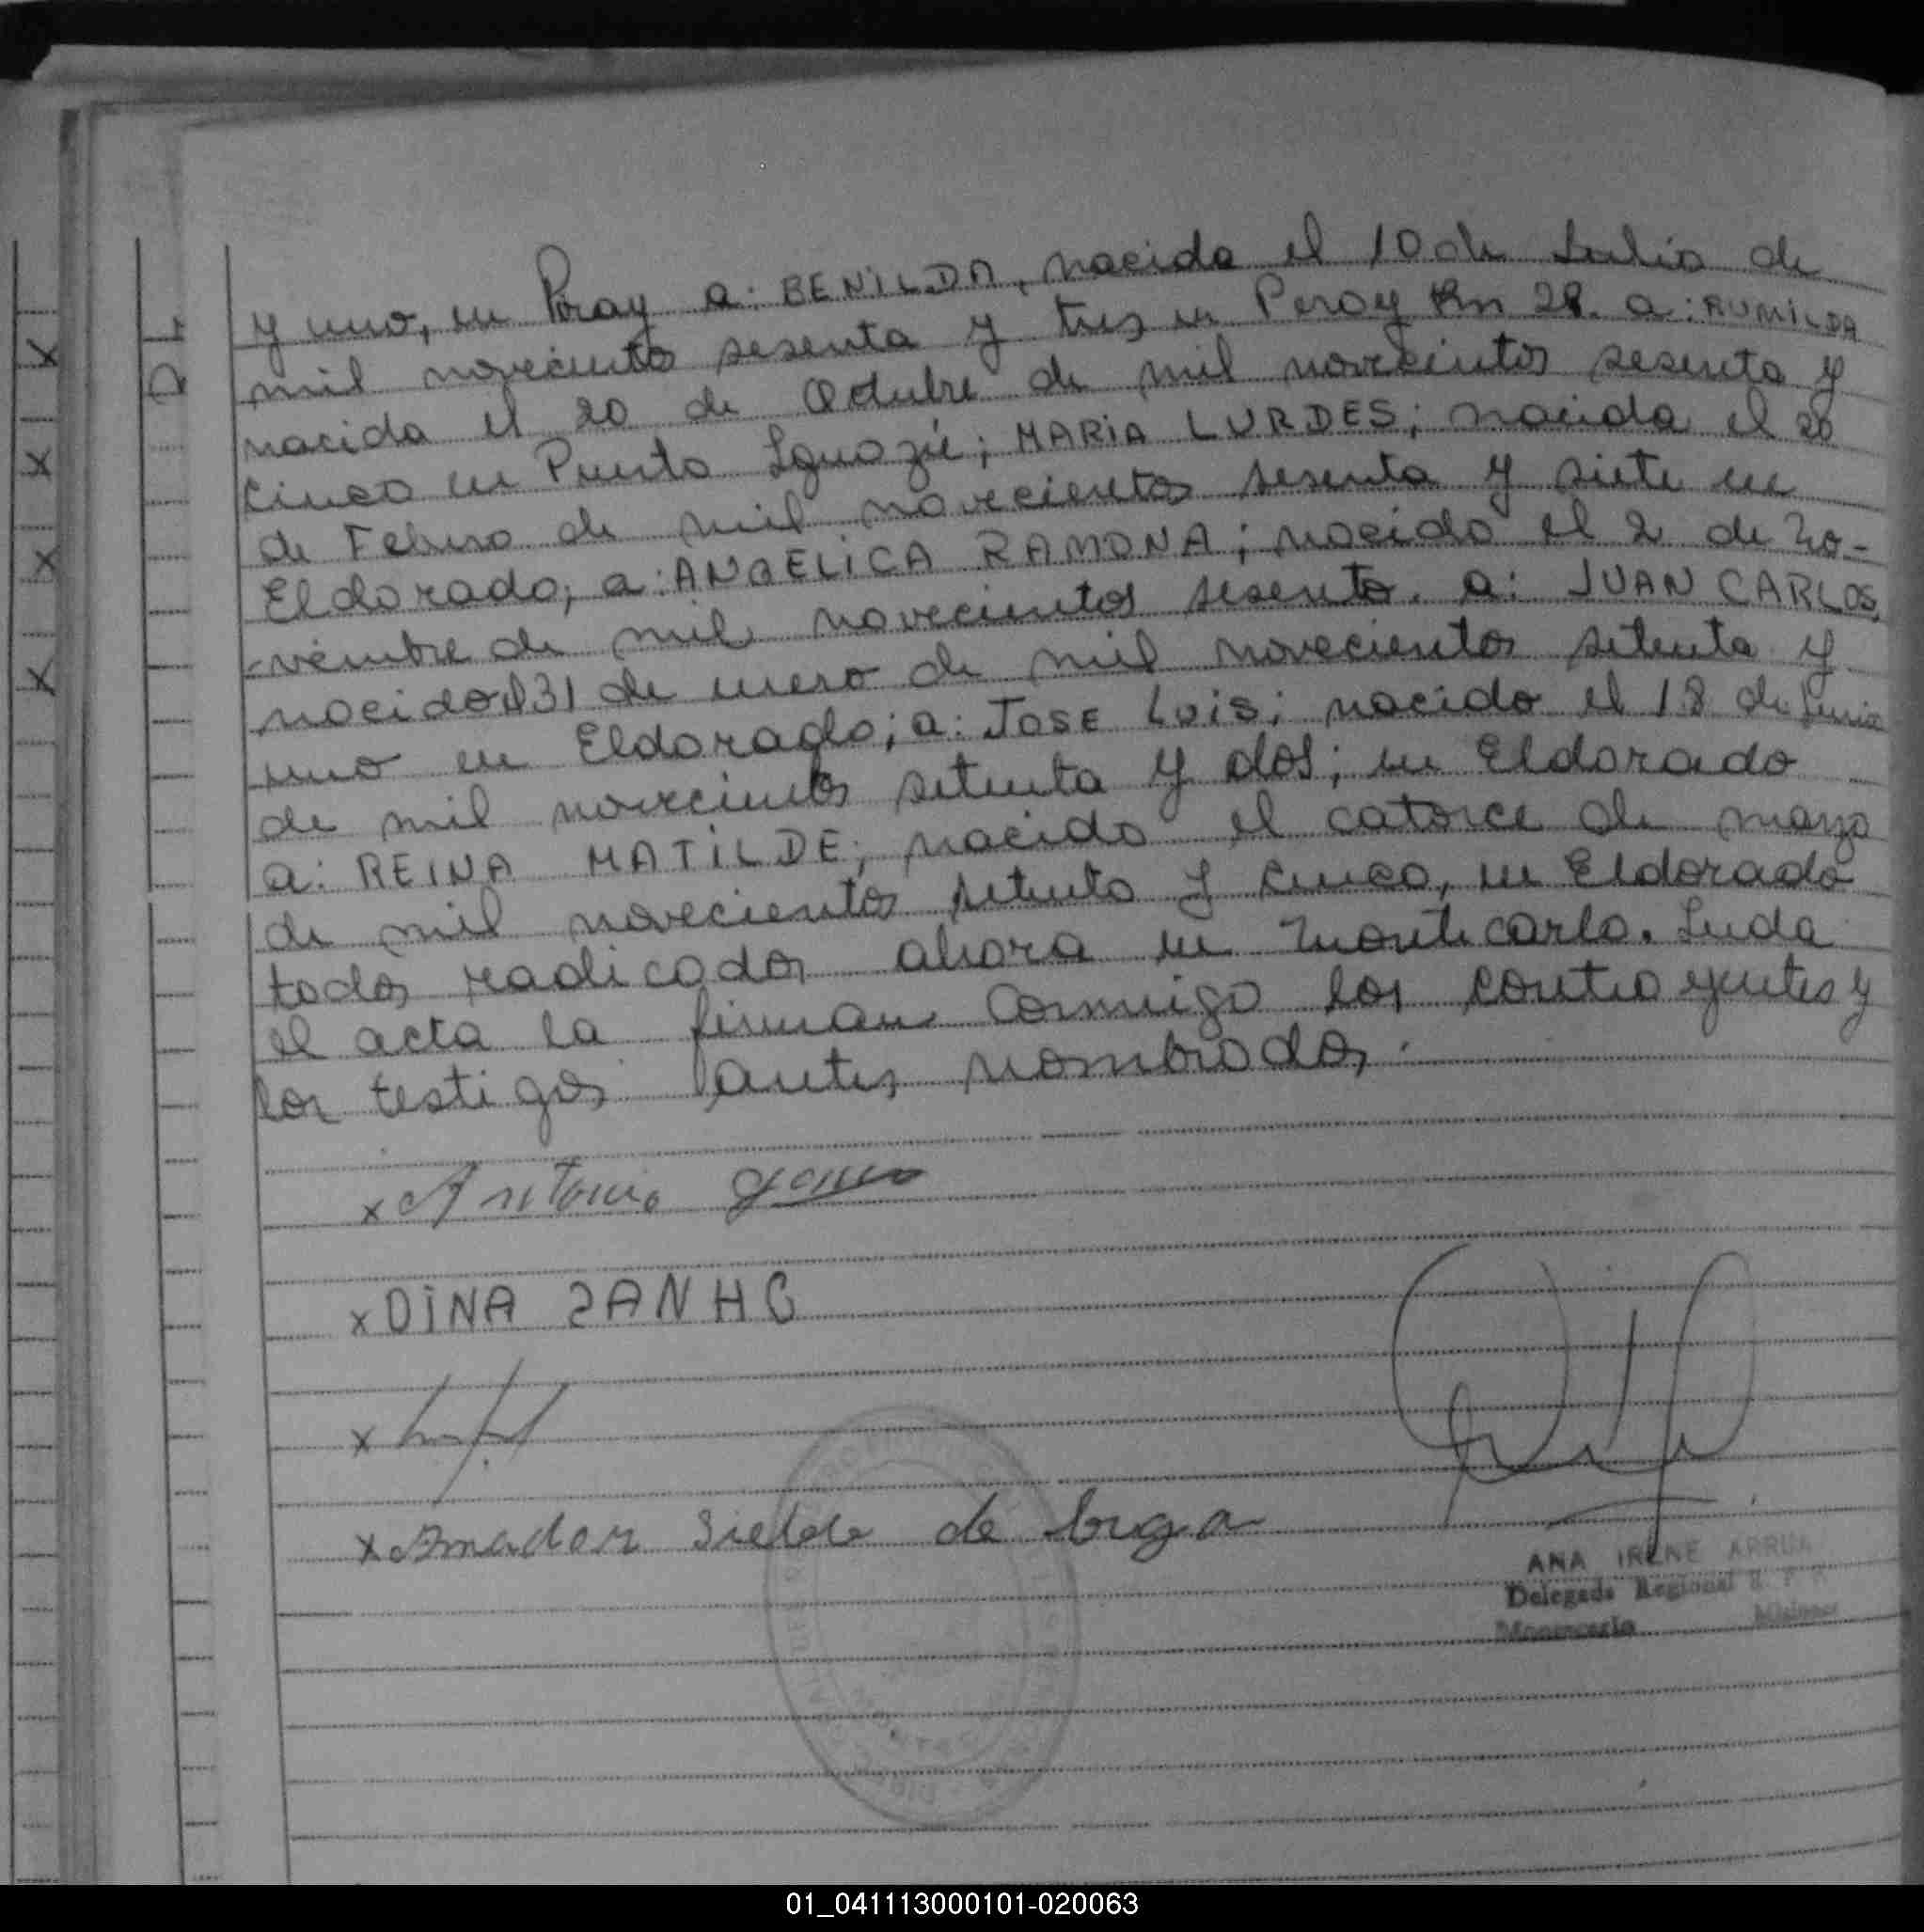 y uno, en Piray a: BENILDA, nacida el 10 de Julio de
mil novecientos sesenta y tres en Peray Km 28. a: RUMILDA
nacida el 20 de Octubre de mil novecientos sesenta y
cinco en Puerto Iguazú; MARIA LURDES; nacida el 20
de Febrero de mil novecientos sesenta y siete en
Eldorado; a: ANGELICA RAMONA; nacido el 2 de No-
-viembre de mil novecientos sesenta. a: JUAN CARLOS,
nocido el 31 de enero de mil novecientos setenta y
uno en Eldorado; a: JOSE LUIS; nacido el 18 de Junio
de mil novecientos setenta y dos; en Eldorado
a: REINA MATILDE; nacido el catorce de marzo
de mil novecientos setenta y cinco, en Eldorado
todos radicados ahora en Montecarlo. Leida
el acta la firman conmigo los contrayentes y
los testigos antes nombrados.
x Antonio
x DINA ZANHC
x
x Amador de
ANA IRENE ARRUA
Delegada Regional
Montecarlo Misiones
01_041113000101-020063